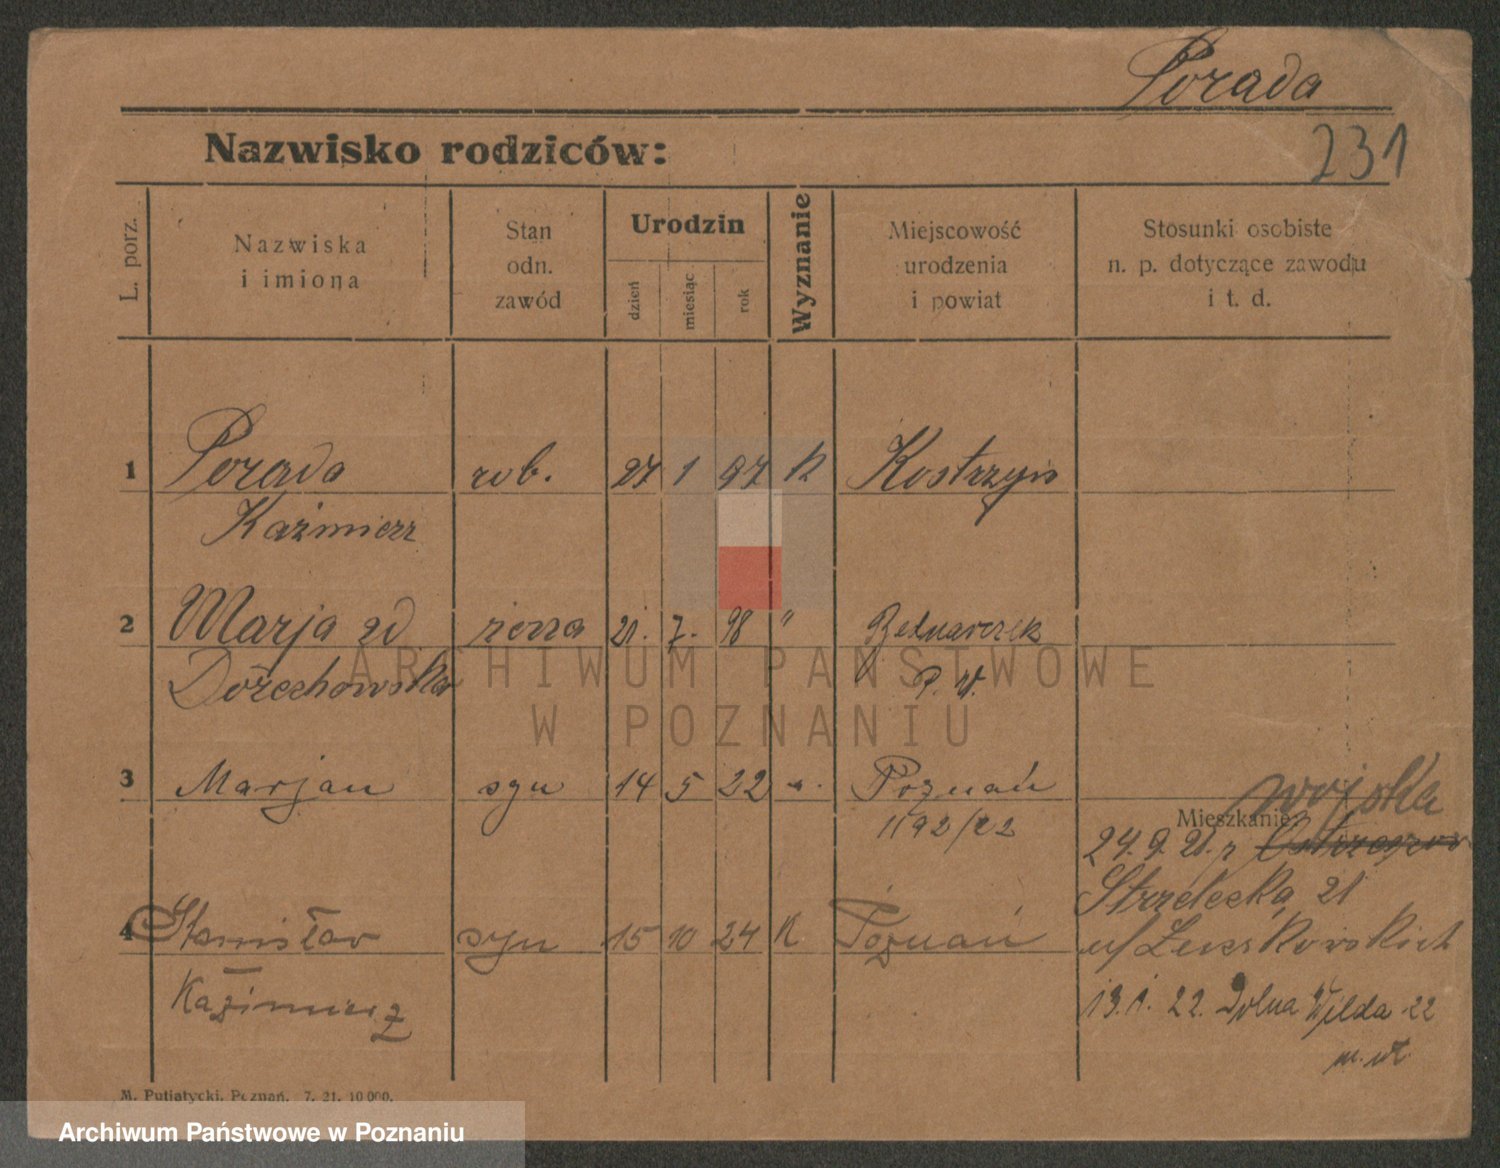 Porada
231
Nazwisko rodziców:
L. porz.
Nazwiska
i imiona
Stan
odn.
zawód
Urodzin
dzień
miesiąc
rok
Wyznanie
Miejscowość
urodzenia
i powiat
Stosunki osobiste
n. p. dotyczące zawodu
i t. d.
1 Porada rob. 27 1 97 K Kostrzyn
Kaźmierz
2 Marja żona 21. 7. 98 " Bednarczek
P. W.
3 Marjan syn 14 5 22 Poznań
1192/22
Mieszkanie:
24. 9. 21. z
Strzelecka 21
4 Stanisław syn 15 10 24 K Poznań
Kazimierz
13. 1. 22. Dolna Wilda 22
M. Putiatycki, Poznań. 7. 21. 10 000.
ARCHIWUM PAŃSTWOWE
W POZNANIU
Archiwum Państwowe w Poznaniu